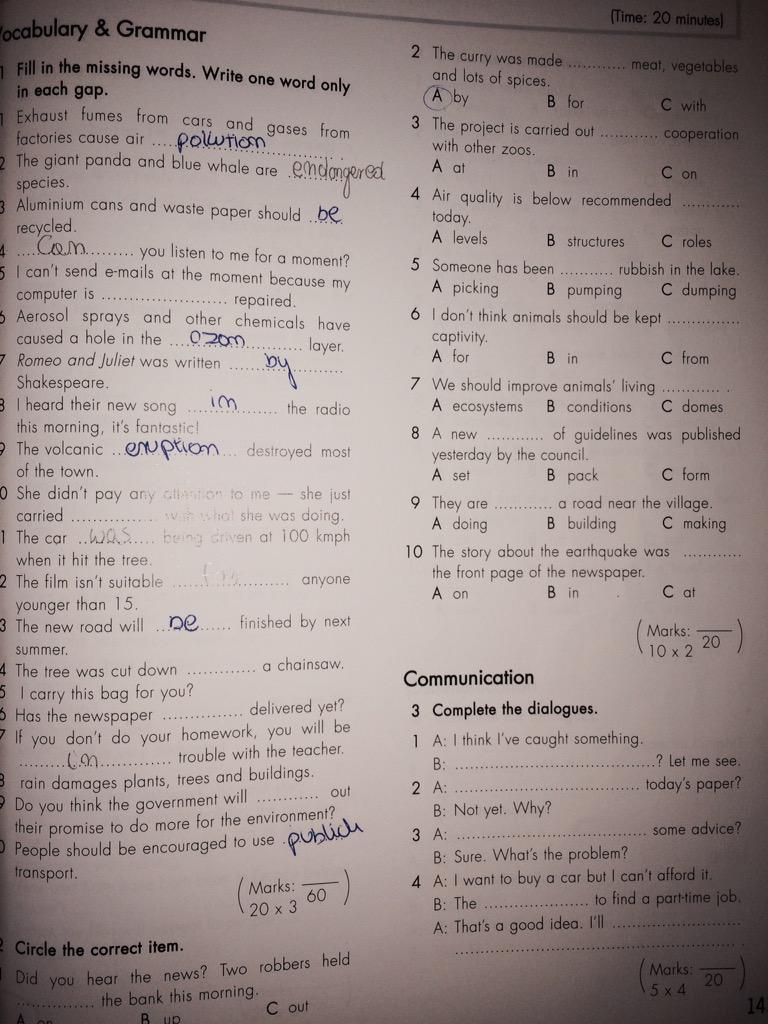 (Time: 20 minutes)
ocabulary & Grammar
Fill in the missing words. Write one word only
in each gap.
Exhaust fumes from cars and gases from
factories cause air ....pollution..............
2 The giant panda and blue whale are ..endangered
species.
3 Aluminium cans and waste paper should ..be
recycled.
4 ....Can......... you listen to me for a moment?
5 I can't send e-mails at the moment because my
computer is ...................... repaired.
6 Aerosol sprays and other chemicals have
caused a hole in the ....ozon........... layer.
7 Romeo and Juliet was written ......by.........
Shakespeare.
8 I heard their new song ....in......... the radio
this morning, it's fantastic!
9 The volcanic ..eruption... destroyed most
of the town.
0 She didn't pay any attention to me — she just
carried ................ with what she was doing.
1 The car ..was..... being driven at 100 kmph
when it hit the tree.
2 The film isn't suitable .................... anyone
younger than 15.
3 The new road will ..be...... finished by next
summer.
4 The tree was cut down ............ a chainsaw.
5 I carry this bag for you?
6 Has the newspaper .............. delivered yet?
7 If you don't do your homework, you will be
........in............. trouble with the teacher.
8 rain damages plants, trees and buildings.
9 Do you think the government will ........... out
their promise to do more for the environment?
0 People should be encouraged to use .publich
transport.
(Marks: 60
20 x 3)
2 Circle the correct item.
Did you hear the news? Two robbers held
.................. the bank this morning.
A on B up C out
2 The curry was made ........... meat, vegetables
and lots of spices.
A by B for C with
3 The project is carried out ........... cooperation
with other zoos.
A at B in C on
4 Air quality is below recommended ...........
today.
A levels B structures C roles
5 Someone has been .......... rubbish in the lake.
A picking B pumping C dumping
6 I don't think animals should be kept .............
captivity.
A for B in C from
7 We should improve animals' living ........... .
A ecosystems B conditions C domes
8 A new ........... of guidelines was published
yesterday by the council.
A set B pack C form
9 They are ........... a road near the village.
A doing B building C making
10 The story about the earthquake was ...........
the front page of the newspaper.
A on B in C at
(Marks: 20
10 x 2)
Communication
3 Complete the dialogues.
1 A: I think I've caught something.
B: ....................................? Let me see.
2 A: .................................. today's paper?
B: Not yet. Why?
3 A: .................................. some advice?
B: Sure. What's the problem?
4 A: I want to buy a car but I can't afford it.
B: The ................... to find a part-time job.
A: That's a good idea. I'll .......................
..................................................
(Marks: 20
5 x 4)
14